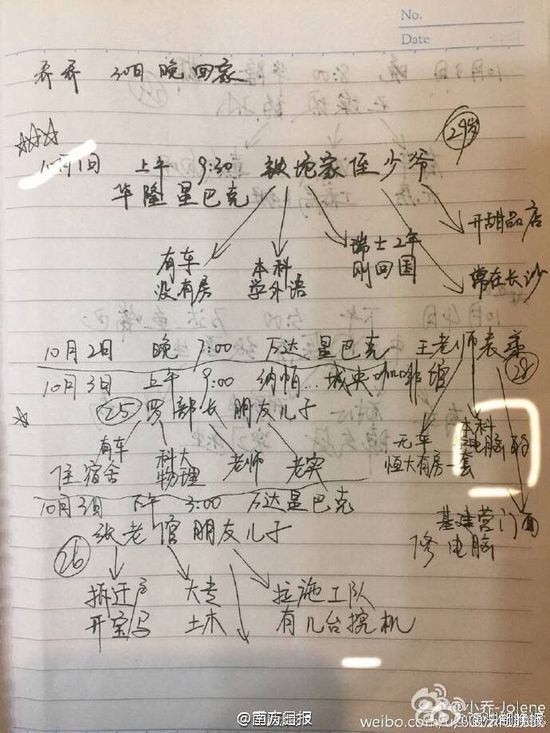 No.
Date
乔乔 30日晚回家
29岁
10月1日 上午 9:30 铁坨家侄少爷
华隆星巴克
开甜品店
有车
没有房
本科
学外语
瑞士2年
刚回国
常在长沙
10月2日 晚 7:00 万达星巴克 王老师表弟
28
10月3日 上午 9:00 纳帕...城央咖啡馆
25 罗部长朋友儿子
有车
住宿舍
科大
物理
老师
老实
无车
恒大有房一套
本科
电脑
10月3日 下午 3:00 万达星巴克
基建营门面
修电脑
张老倌朋友儿子
26
拆迁户
开宝马
大专
土木
拉施工队
有几台挖机
@南方日报
@小乔-Jolene
@法制晚报
weibo.com/u/